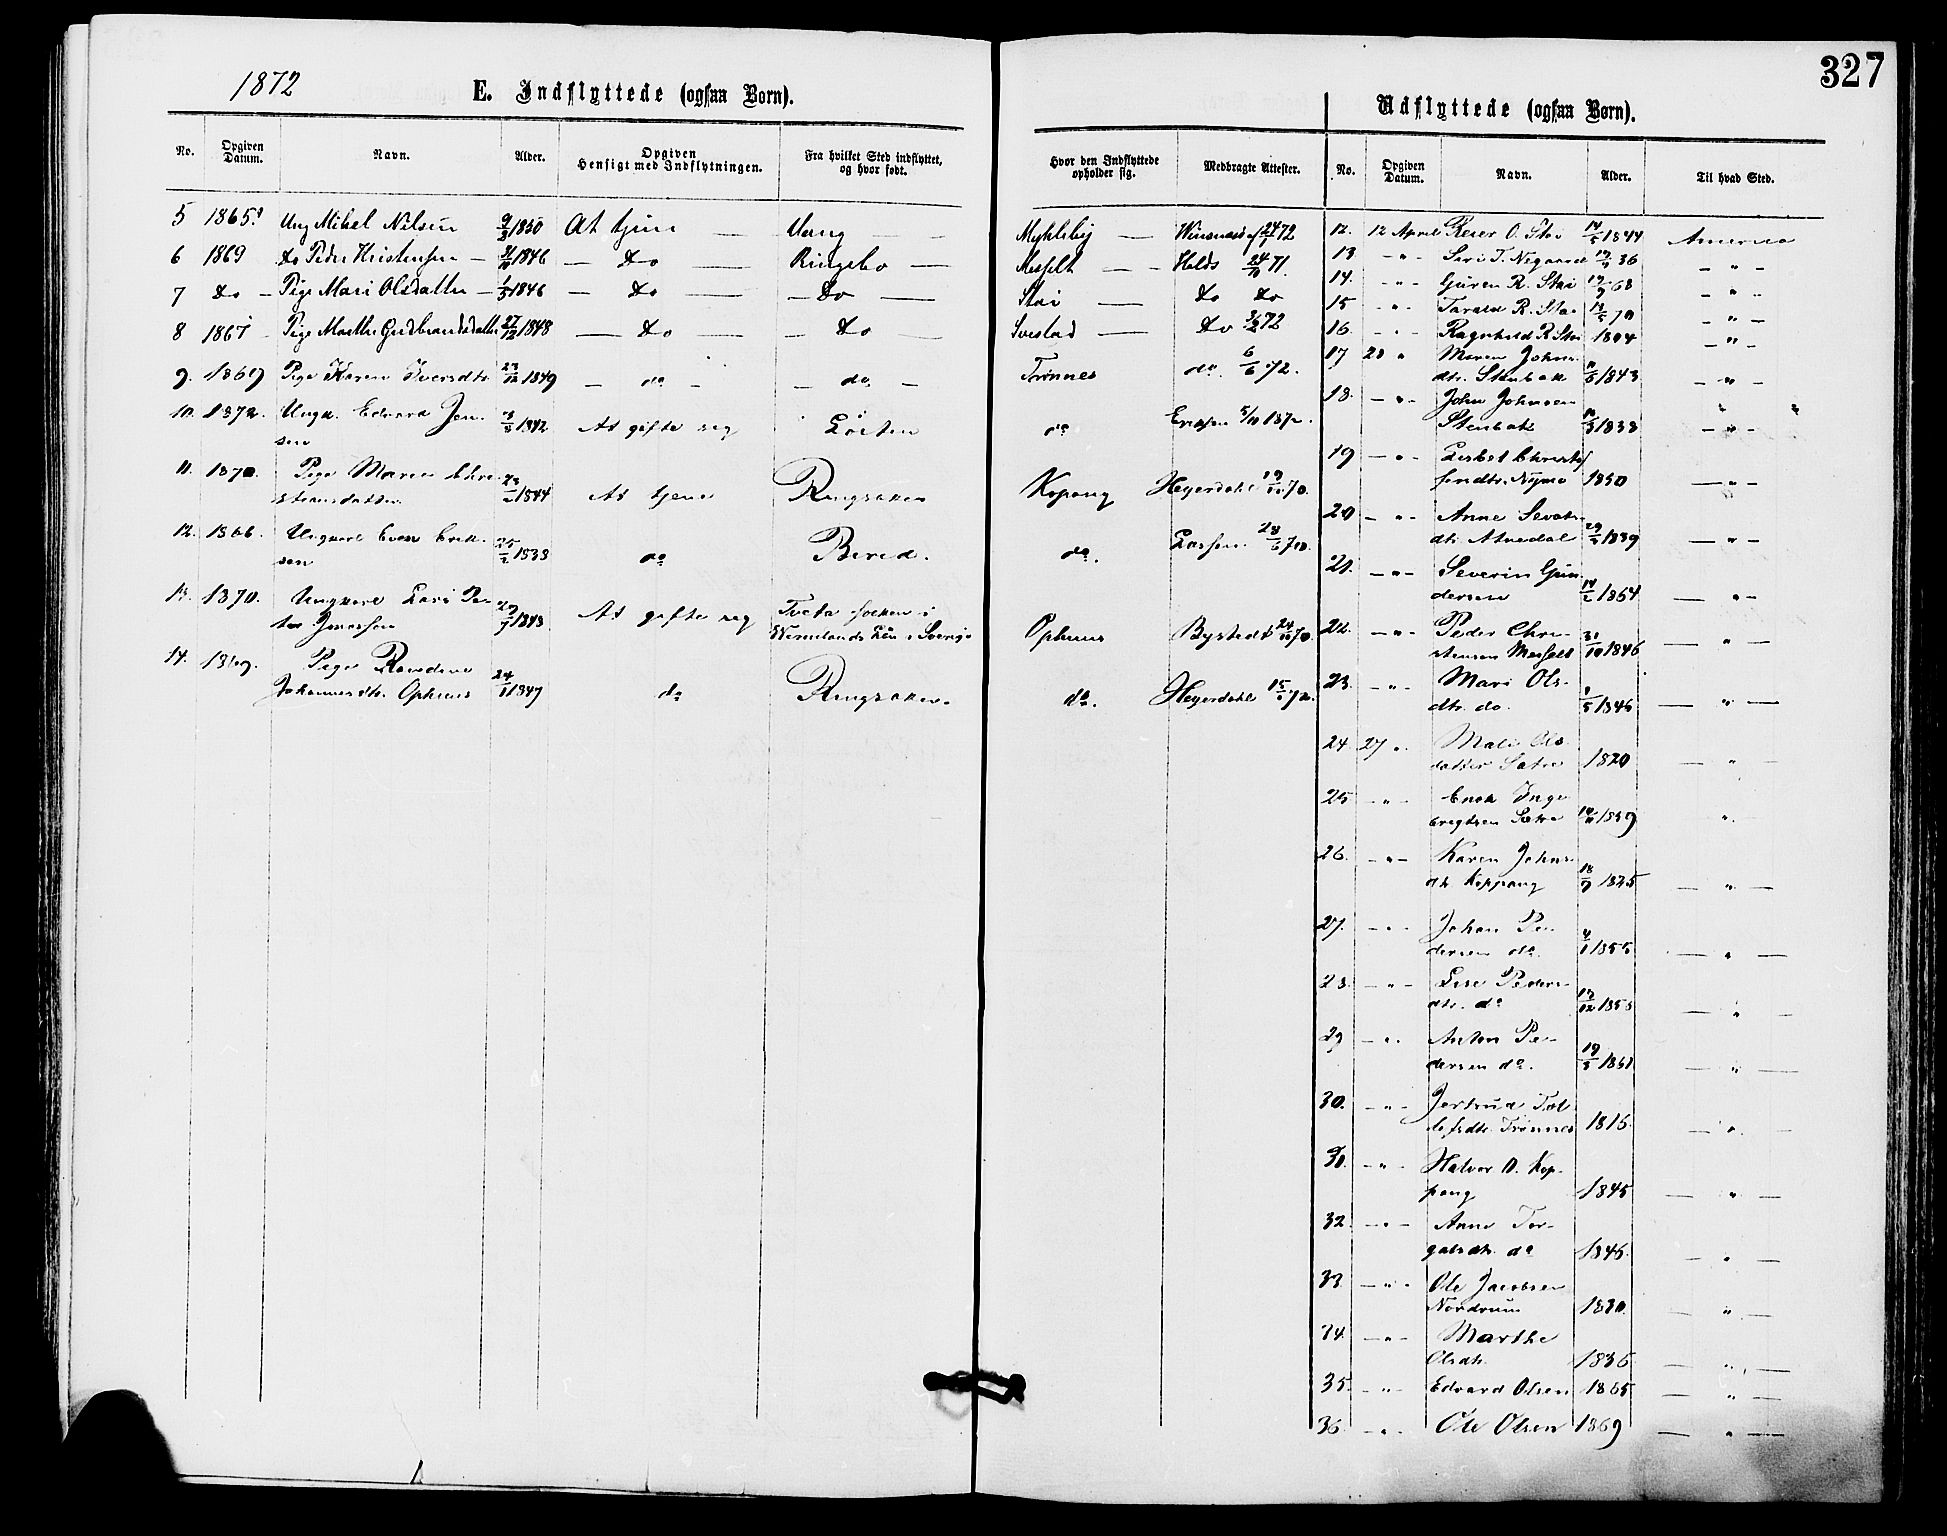 327
1872
E. Indflyttede (ogsaa Børn).
No. Opgiven Datum. Navn. Alder. Opgiven Hensigt med Indflytningen. Fra hvilket Sted indflyttet, og hvor født. Hvor den Indflyttede opholder sig. Medbragte Attester.
5 1865 Ung Mikel Nilsen 9/3 1850 At tjene — Vang — Mykleby —
6 1869 do Peder Kristensen — 1846 — do — Ringebo — Messelt — Holds 24/ 71.
7 do — Pige Mari Olsdatter — 1/5 1846 — do — do — Stai — do do
8 1867 — Pige Marthe Gudbrandsdatter 27/12 1848 — do — do — do 72
9. 1869 Pige Karen Iversdtr. 1849 — do — do — Trønnes do. 6/6 72.
10. 1872. Ungk. Edvard Jensen 1842 At gifte sig Löiten do
11. 1870. Pige Maren Christiansdatter 1844 At tjene Ringsaker Kopang Heyerdahl 70.
12. 1866. Ungkarl Even Eriksen 1833 do Bired. do. 28/6 70.
13. 1870. Ungkarl Lars Petter 1843 At gifte sig i Wermlands Län i Sverige Ophuus Bystedt 24/10 70.
14. 1869. Pige Johannesdtr. Ophuus 1847 do Ringsaker. do. Heyerdahl 15/ 72.
Udflyttede (ogsaa Børn).
No. Opgiven Datum. Navn. Alder. Til hvad Sted.
12. 12 April O. Stai 14/5 1844 America
13 — " — Siri T. Negaard 36 — " —
14. — " — Guren R. Stai 68 — " —
15 — " — Tarald R. Stai 70 — " —
16. — " — Ragnhild R Stai 1804 — " —
17 20 " Maren Johnsdtr. Stenbak 1843 — " —
18. — " — John Johnsen Stenbak 1838 — " —
19 — " — Lisbet Christofersdtr. Nymo 1850 — " —
20 — " — Anne Sivertsdtr. 1839 — " —
21. — " — Severin Gundersen 14/2 1864 — " —
22. — " — Peder Christensen Messelt 31/10 1846 — " —
23. — " — Mari Olsdtr. do. 1/5 1846 — " —
24 27 " Mali Olsdatter Sætre 1820 — " —
25 — " — Enok Ingebregtsen Sætre 1859 "
26. — " — Karen Johnsdtr. Koppang 18/7 1825 — " —
27. — " — Johan Pedersen do. 1855 — " —
28. — " — Lise Pedersdtr. do — " —
29 — " Anton Pedersen do. 1861 — " —
30. — " — Jertrud Tollefsdtr. Trønnes 1816. — " —
31. — " — Halvor O. Koppang 1845 — " —
32. — " — Anne Torgalsdtr. do 1846. — " —
33 — " — Ole Jacobsen Nordrum 1830. — " —
34. — " — Marthe Olsdtr. 1836. — " —
35. — " — Edvard Olsen 1865 — " —
36. — " — Ole Olsen 1869 — " —